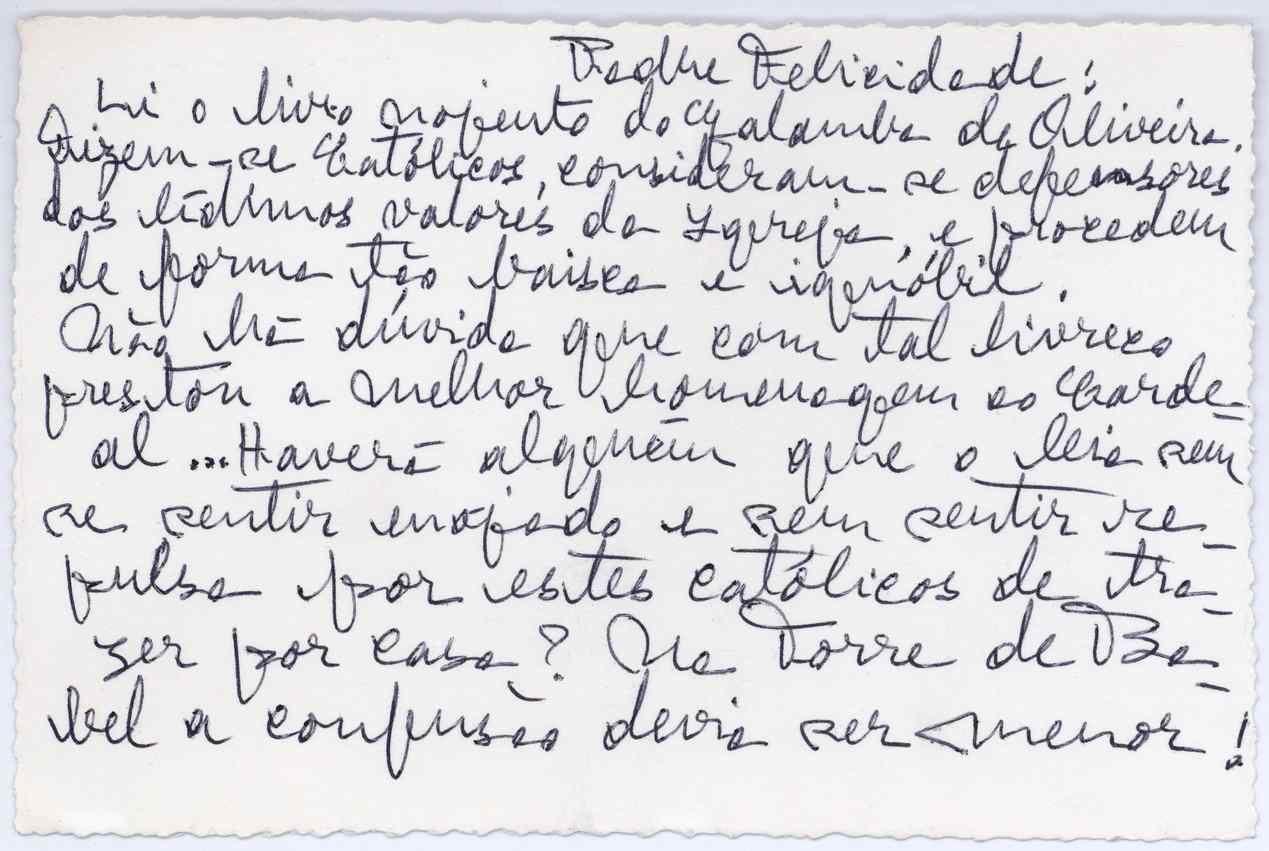 Padre Felicidade:
Li o livro nojento do Galamba de Oliveira.
Dizem-se Católicos, consideram-se defensores
dos lídimos valores da Igreja, e procedem
de forma tão baixa e ignóbil.
Não há dúvida que com tal livreco
prestou a melhor homenagem ao Carde-
al... Haverá alguém que o leia sem
se sentir enojado e sem sentir re-
pulsa por estes católicos de tra-
zer por casa? Na Torre de Ba-
bel a confusão devia ser menor!